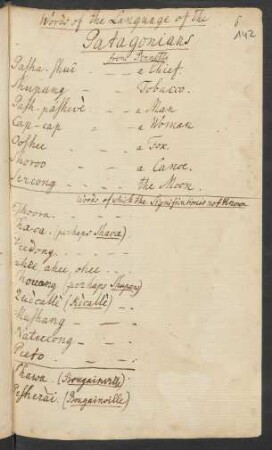 Words of the Language of the
6
142
Patagonians
from Pennett
Pasha-shui - - a Chief.
Shupang - - Tobacco.
Pash-pasheve - - a Man
Cap-cap - - a Woman
Ooshee - - a Fox.
Shoroo - - a Canoe.
Sercong - - - the Moon.
Words of which the Significations not Known
Choorn - - -
Chaca. (perhaps Shaca)
Ohee ahee, ohee. - -
Chouang (perhaps Shupan)
Quecalle (Ricalle) -
Mushang - - -
Natteeong - - -
Pieto - - -
Chawa. (Bougainville)
Pesherai. (Bougainville)